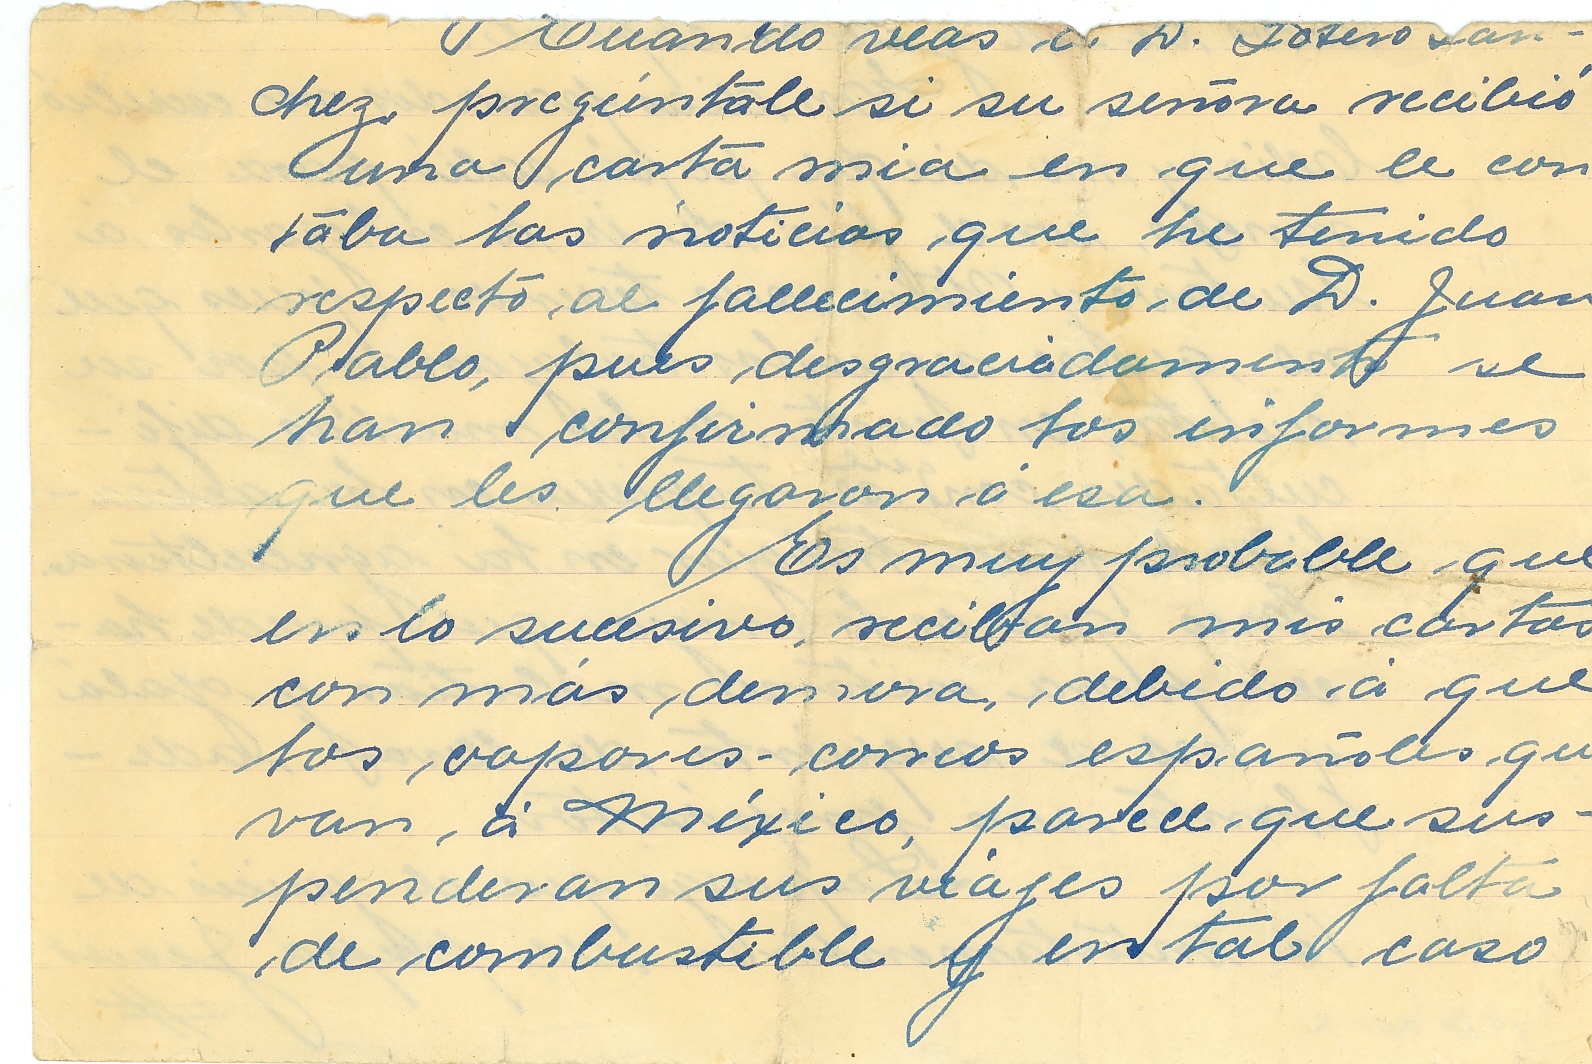 Cuando veas á D. Sotero San-
chez, pregúntale si su señora recibió
una carta mia en que le con
taba las noticias que he tenido
respecto al fallecimiento de D. Juan
Pablo, pues desgraciadamente se
han confirmado los informes
que les llegaron á esa.
Es muy probable que
en lo sucesivo, reciban mis cartas
con más demora, debido á que
los vapores-correos españoles qu
van á México, parece que sus-
penderan sus viajes por falta
de combustible y en tal caso